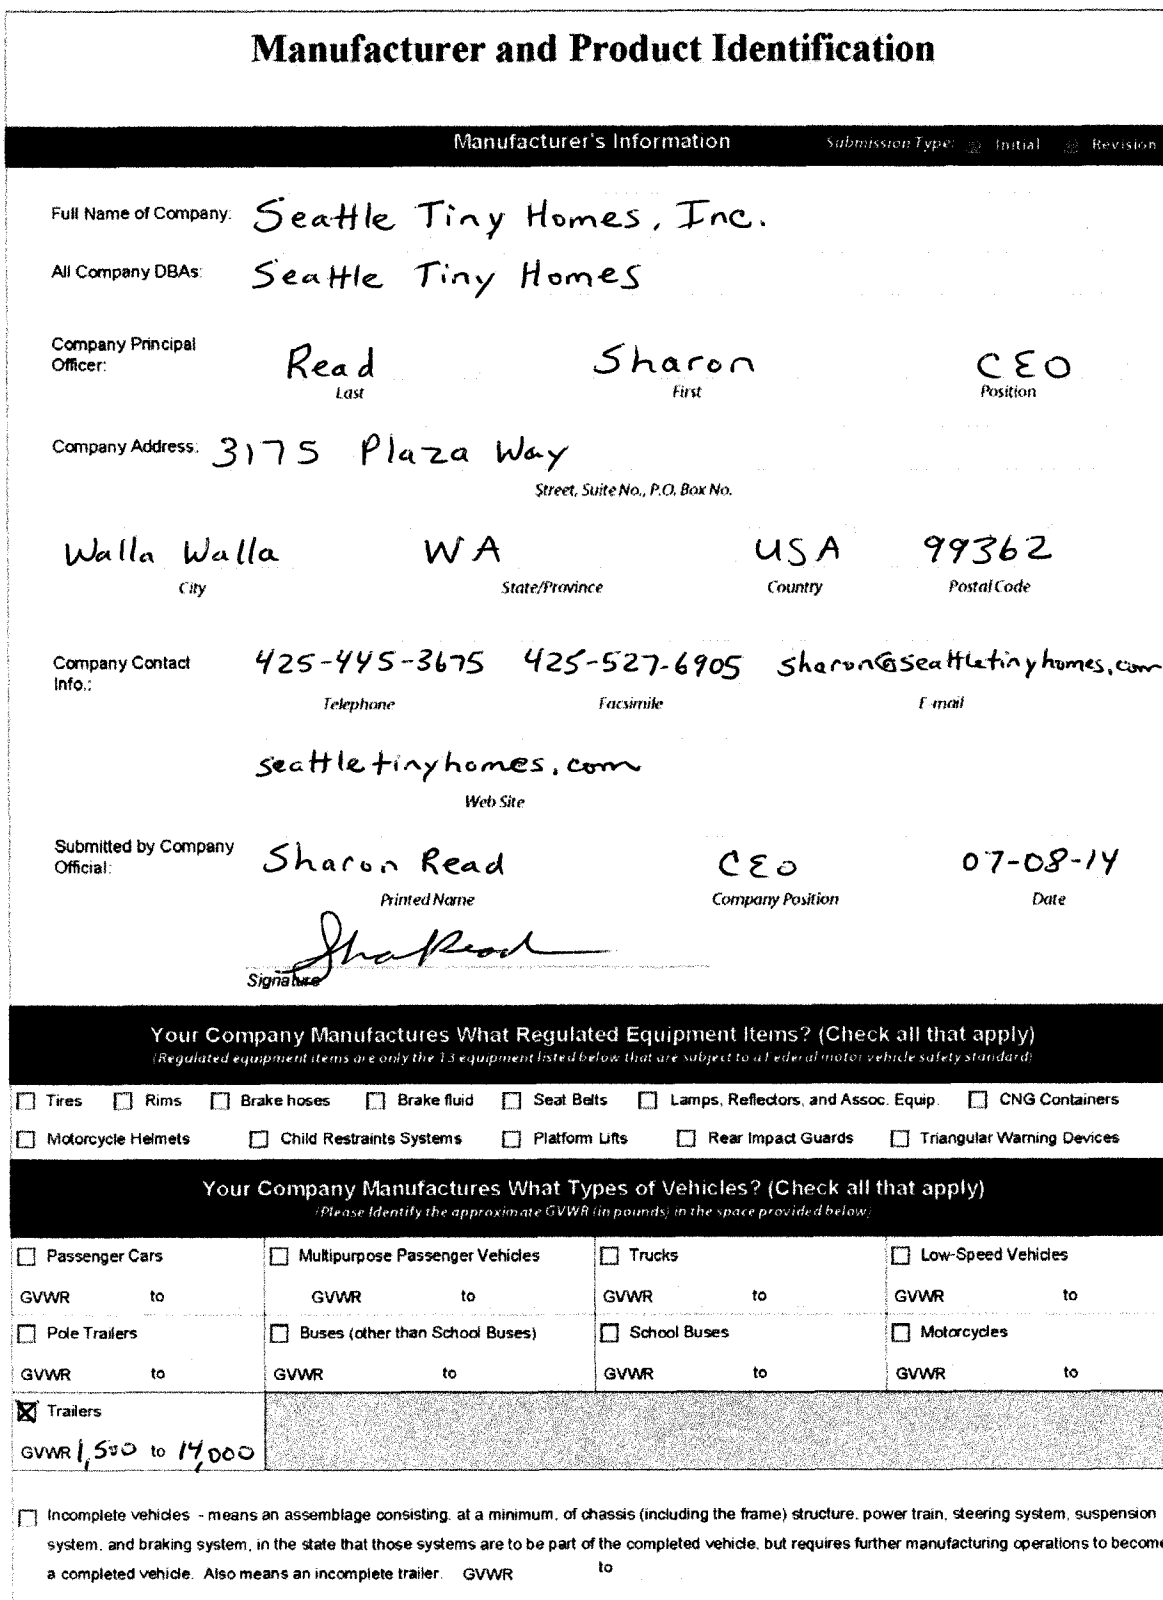 Manufacturer and Product Identification
Manufacturer's Information Submission Type: Initial Revision
Full Name of Company: Seattle Tiny Homes, Inc.
All Company DBAs: Seattle Tiny Homes
Company Principal
Officer: Read Sharon CEO
Last First Position
Company Address: 3175 Plaza Way
Street, Suite No., P.O. Box No.
Walla Walla WA USA 99362
City State/Province Country Postal Code
Company Contact
Info.: 425-445-3675 425-527-6905 sharon@seattletinyhomes.com
Telephone Facsimile E-mail
seattletinyhomes.com
Web Site
Submitted by Company
Official: Sharon Read CEO 07-08-14
Printed Name Company Position Date
Signature
Your Company Manufactures What Regulated Equipment Items? (Check all that apply)
(Regulated equipment items are only the 13 equipment listed below that are subject to a Federal motor vehicle safety standard)
Tires Rims Brake hoses Brake fluid Seat Belts Lamps, Reflectors, and Assoc. Equip. CNG Containers
Motorcycle Helmets Child Restraints Systems Platform Lifts Rear Impact Guards Triangular Warning Devices
Your Company Manufactures What Types of Vehicles? (Check all that apply)
(Please Identify the approximate GVWR (in pounds) in the space provided below)
Passenger Cars Multipurpose Passenger Vehicles Trucks Low-Speed Vehicles
GVWR to GVWR to GVWR to GVWR to
Pole Trailers Buses (other than School Buses) School Buses Motorcycles
GVWR to GVWR to GVWR to GVWR to
Trailers
GVWR 1,500 to 14,000
Incomplete vehicles - means an assemblage consisting, at a minimum, of chassis (including the frame) structure, power train, steering system, suspension
system, and braking system, in the state that those systems are to be part of the completed vehicle, but requires further manufacturing operations to become
a completed vehicle. Also means an incomplete trailer. GVWR to